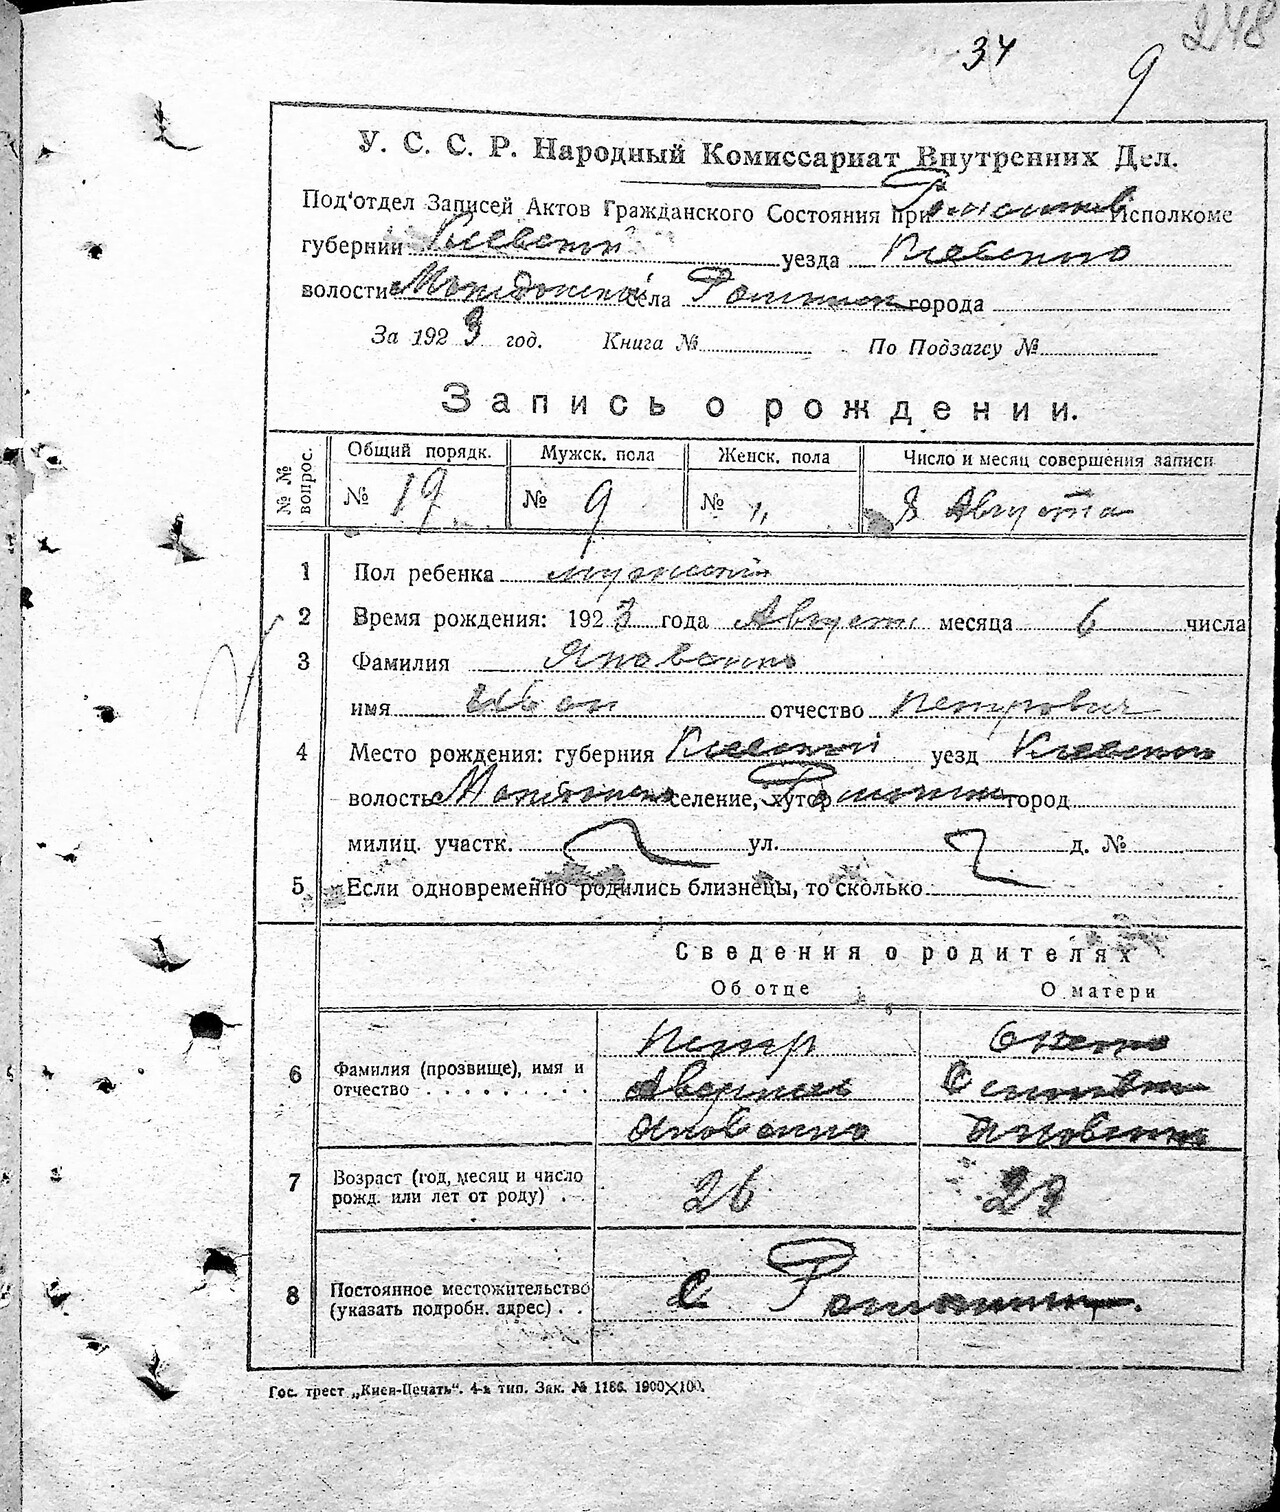 248
34
9
У. С. С. Р. Народный Комиссариат Внутренних Дел.
Под'отдел Записей Актов Гражданского Состояния при Исполкоме
губернии Киевской уезда Киевского
волости села города
За 1923 год. Книга № По Подзагсу №
Запись о рождении.
№ № вопрос. Общий порядк. Мужск. пола Женск. пола Число и месяц совершения записи
№ 19 № 9 № „ 8 Августа
1 Пол ребенка мужской
2 Время рождения: 1923 года Август месяца 6 числа
3 Фамилия Яновенко
имя Иван отчество Петрович
4 Место рождения: губерния Киевской уезд Киевского
волость селение, хутор город
милиц. участк. ул. д. №
5 Если одновременно родились близнецы, то сколько
Сведения о родителях
Об отце О матери
6 Фамилия (прозвище), имя и отчество . . . . . . . .
Петр
Яновенко
7 Возраст (год, месяц и число рожд. или лет от роду) . 26 23
8 Постоянное местожительство (указать подробн. адрес) . . С
Гос. трест „Киев-Печать“. 4-я тип. Зак. № 1186. 1900×100.